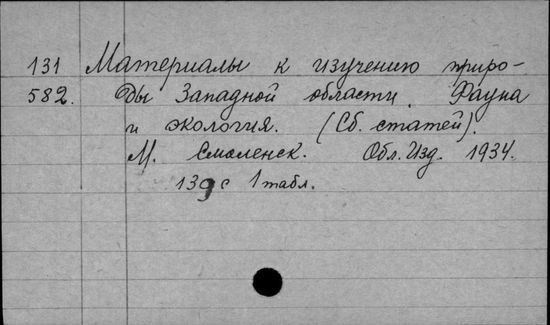 131 Материалы к изучению приро-
582. ды Западной области. Фауна
и экология. (Сб. статей).
М. Смоленск. Обл. Изд. 1934.
139 с 1 табл.